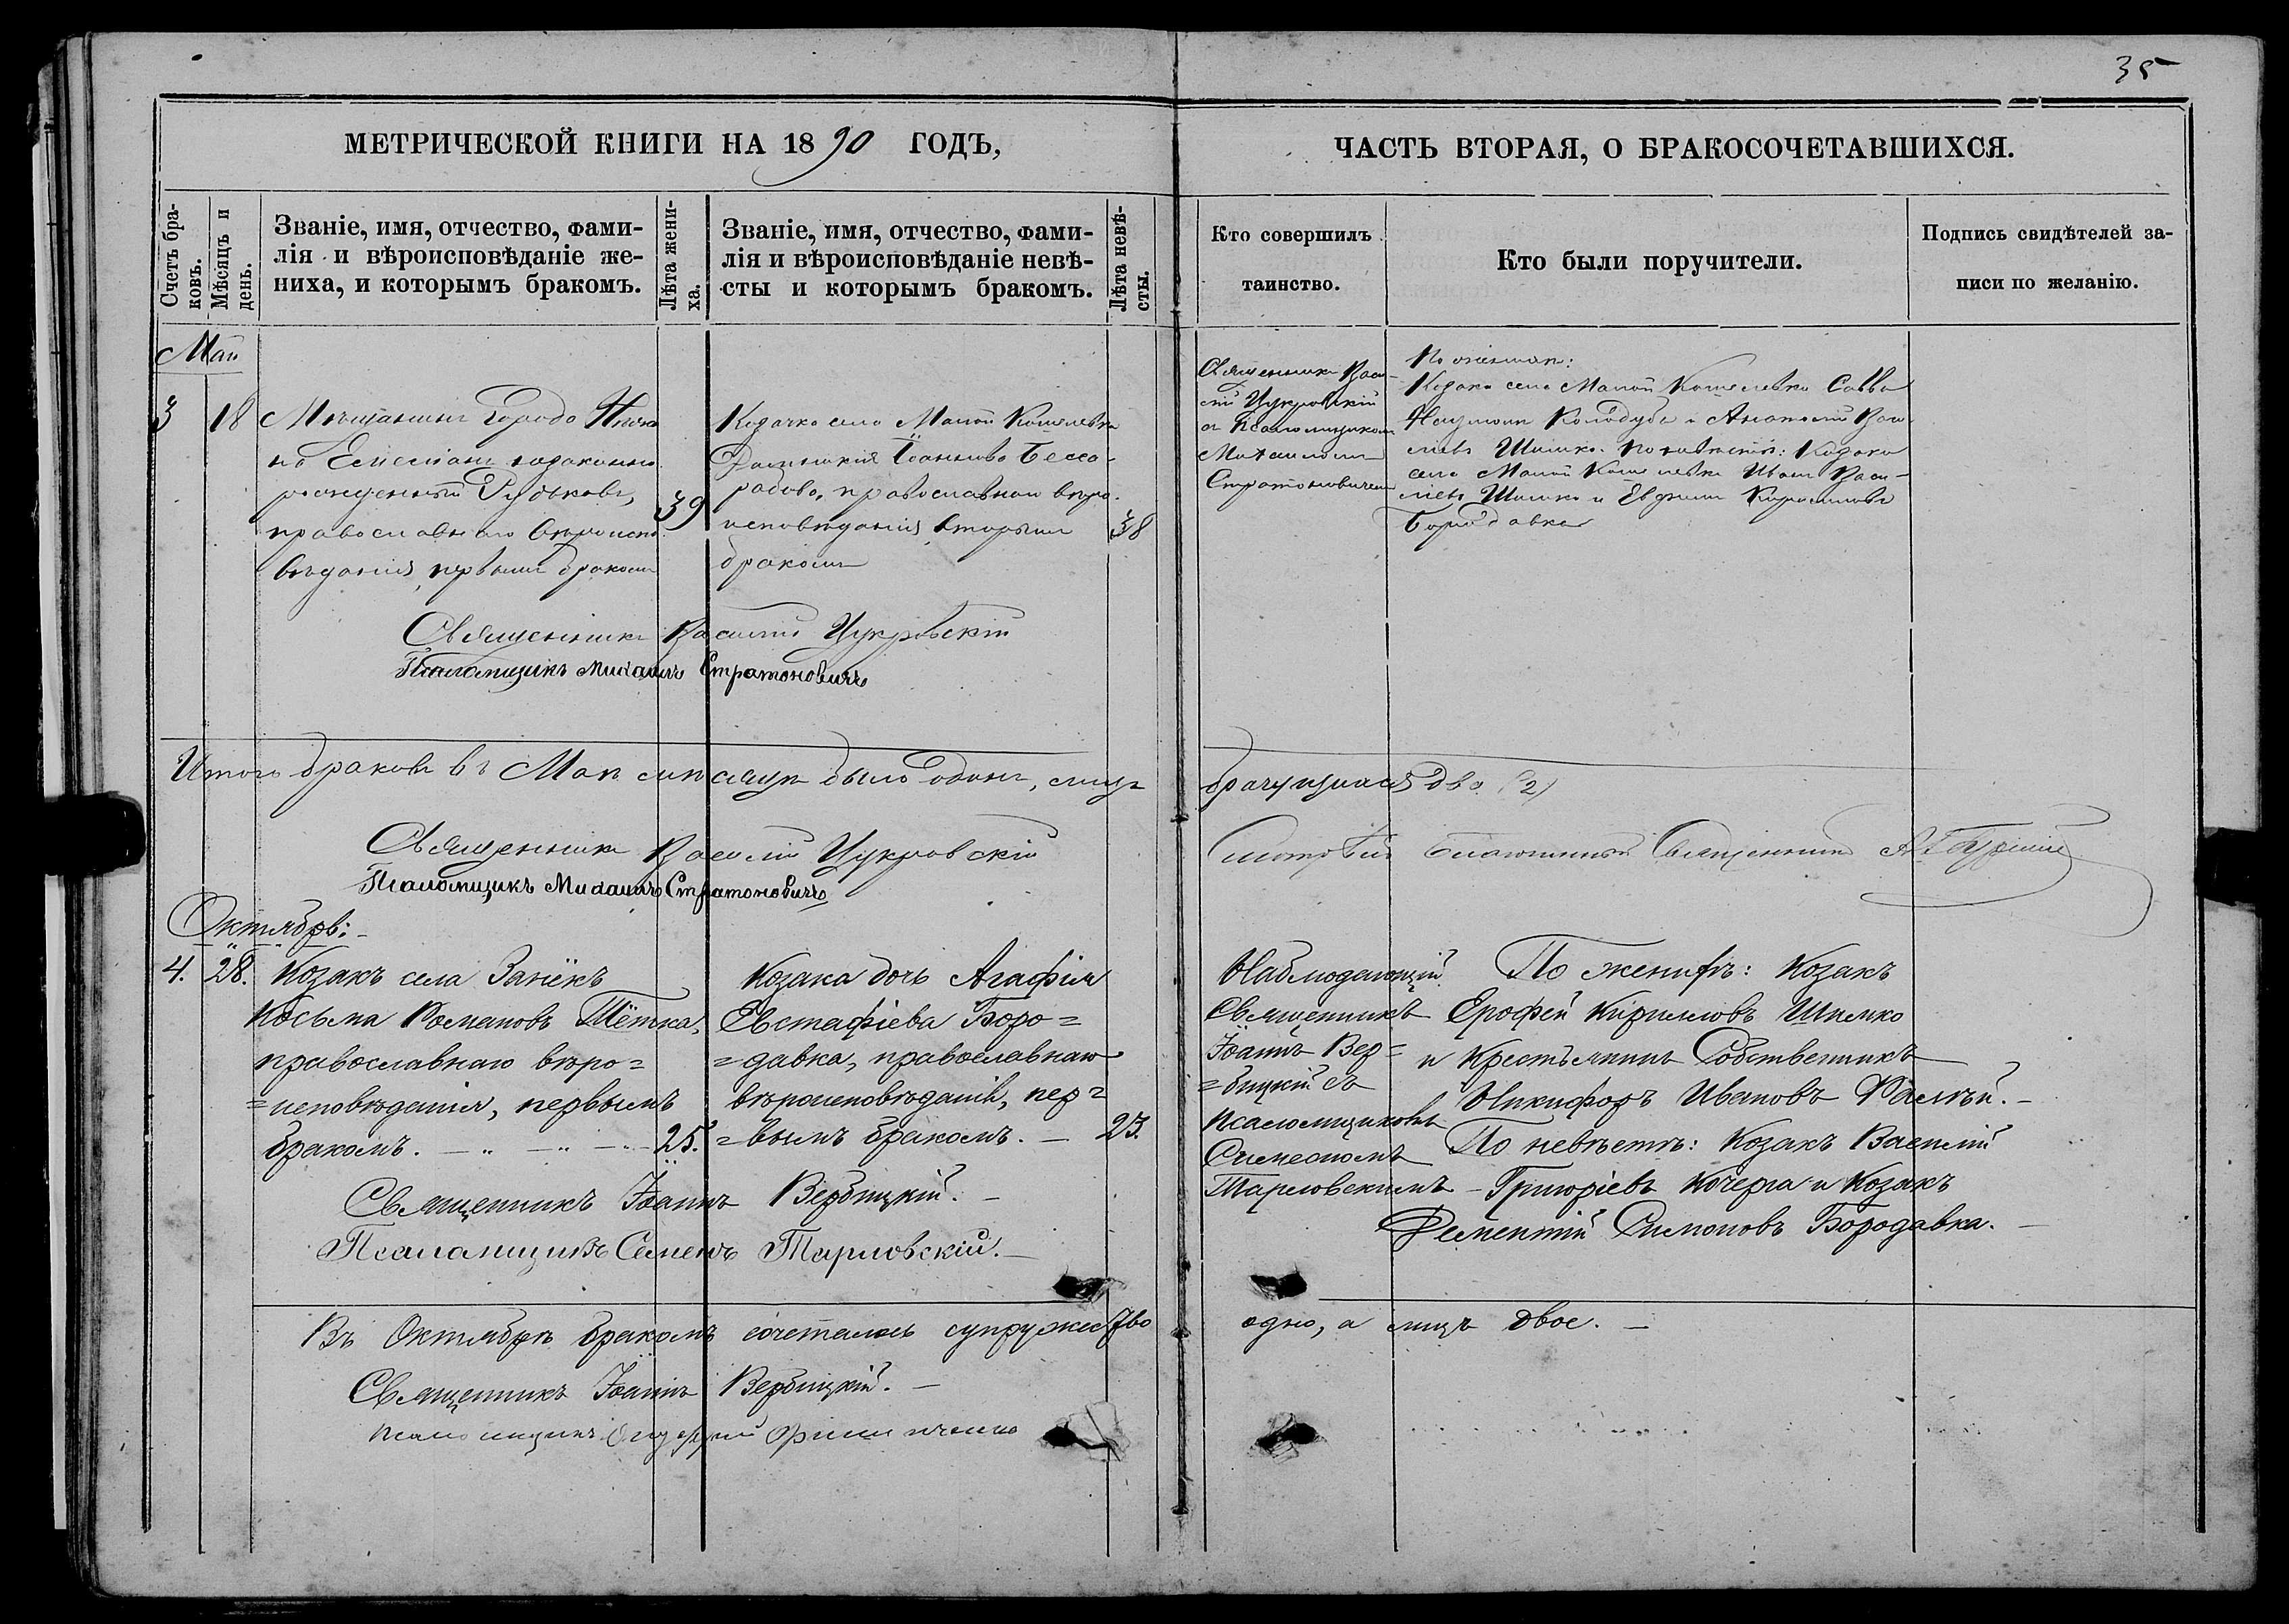 35
МЕТРИЧЕСКОЙ КНИГИ НА 1890 ГОДЪ,
ЧАСТЬ ВТОРАЯ, О БРАКОСОЧЕТАВШИХСЯ.
Счетъ бра-
ковъ.
Мѣсяцъ и
день.
Званіе, имя, отчество, фами-
лія и вѣроисповѣданіе же-
ниха, и которымъ бракомъ.
Лѣта жени-
ха.
Званіе, имя, отчество, фами-
лія и вѣроисповѣданіе невѣ-
сты и которымъ бракомъ.
Лѣта невѣ-
сты.
Кто совершилъ
таинство.
Кто были поручители.
Подпись свидѣтелей за-
писи по желанію.
Май
3 18 Мѣщанинъ города
незаконно
рожденный
православнаго вѣроиспо
вѣданія, первымъ бракомъ
39
Козачка села Малой Кошелевки
Іоаннова
православнаго вѣро
исповѣданія вторымъ
бракомъ
38
Священникъ Васи
лій Цукровскій
съ Псаломщикомъ
Михаиломъ
Стратоновичемъ
По женихѣ:
Козаки села Малой Кошелевки Савва
Наумовъ Колодуба и Анатолій Васи
льевъ Шимко. По невѣстѣ: Козаки
села Малой Кошелевки Иванъ Васи-
льевъ Шимко и Евфимъ Кирилловъ
Бородавка
Священникъ Василій Цукровскій
Псаломщикъ Михаилъ Стратоновичъ
Итого браковъ въ Маѣ мѣсяцѣ было одинъ, лицъ
брачущихся два (2)
Священникъ Василій Цукровскій
Псаломщикъ Михаилъ Стратоновичъ
Священникъ
Октябрь:
4. 28. Козакъ села Заньёкъ
Косьма Романовъ Тётка,
православнаго вѣро=
=исповѣданія, первымъ
бракомъ. 25.
Козака дочь Агафія
Евстафіева Боро=
=давка, православнаго
вѣроисповѣданія, пер=
=вымъ бракомъ. 23.
Наблюдающій
Священникъ
Іоаннъ Вер=
=бицкій съ
псаломщикомъ
Симеономъ
Тарловскимъ
По женихѣ: Козакъ
Ерофей Кирилловъ Шимко
и Крестьянинъ Собственникъ
Никифоръ Ивановъ
По невѣстѣ: Козакъ Василій
Григоріевъ Кочерга и Козакъ
Дементій Симоновъ Бородавка.
Священникъ Іоаннъ Вербицкій.
Псаломщикъ Семенъ Тарловскій.
Въ Октябрѣ бракомъ сочеталось супружество
одно, а лицъ двое.
Священникъ Іоаннъ Вербицкій.
Псаломщикъ